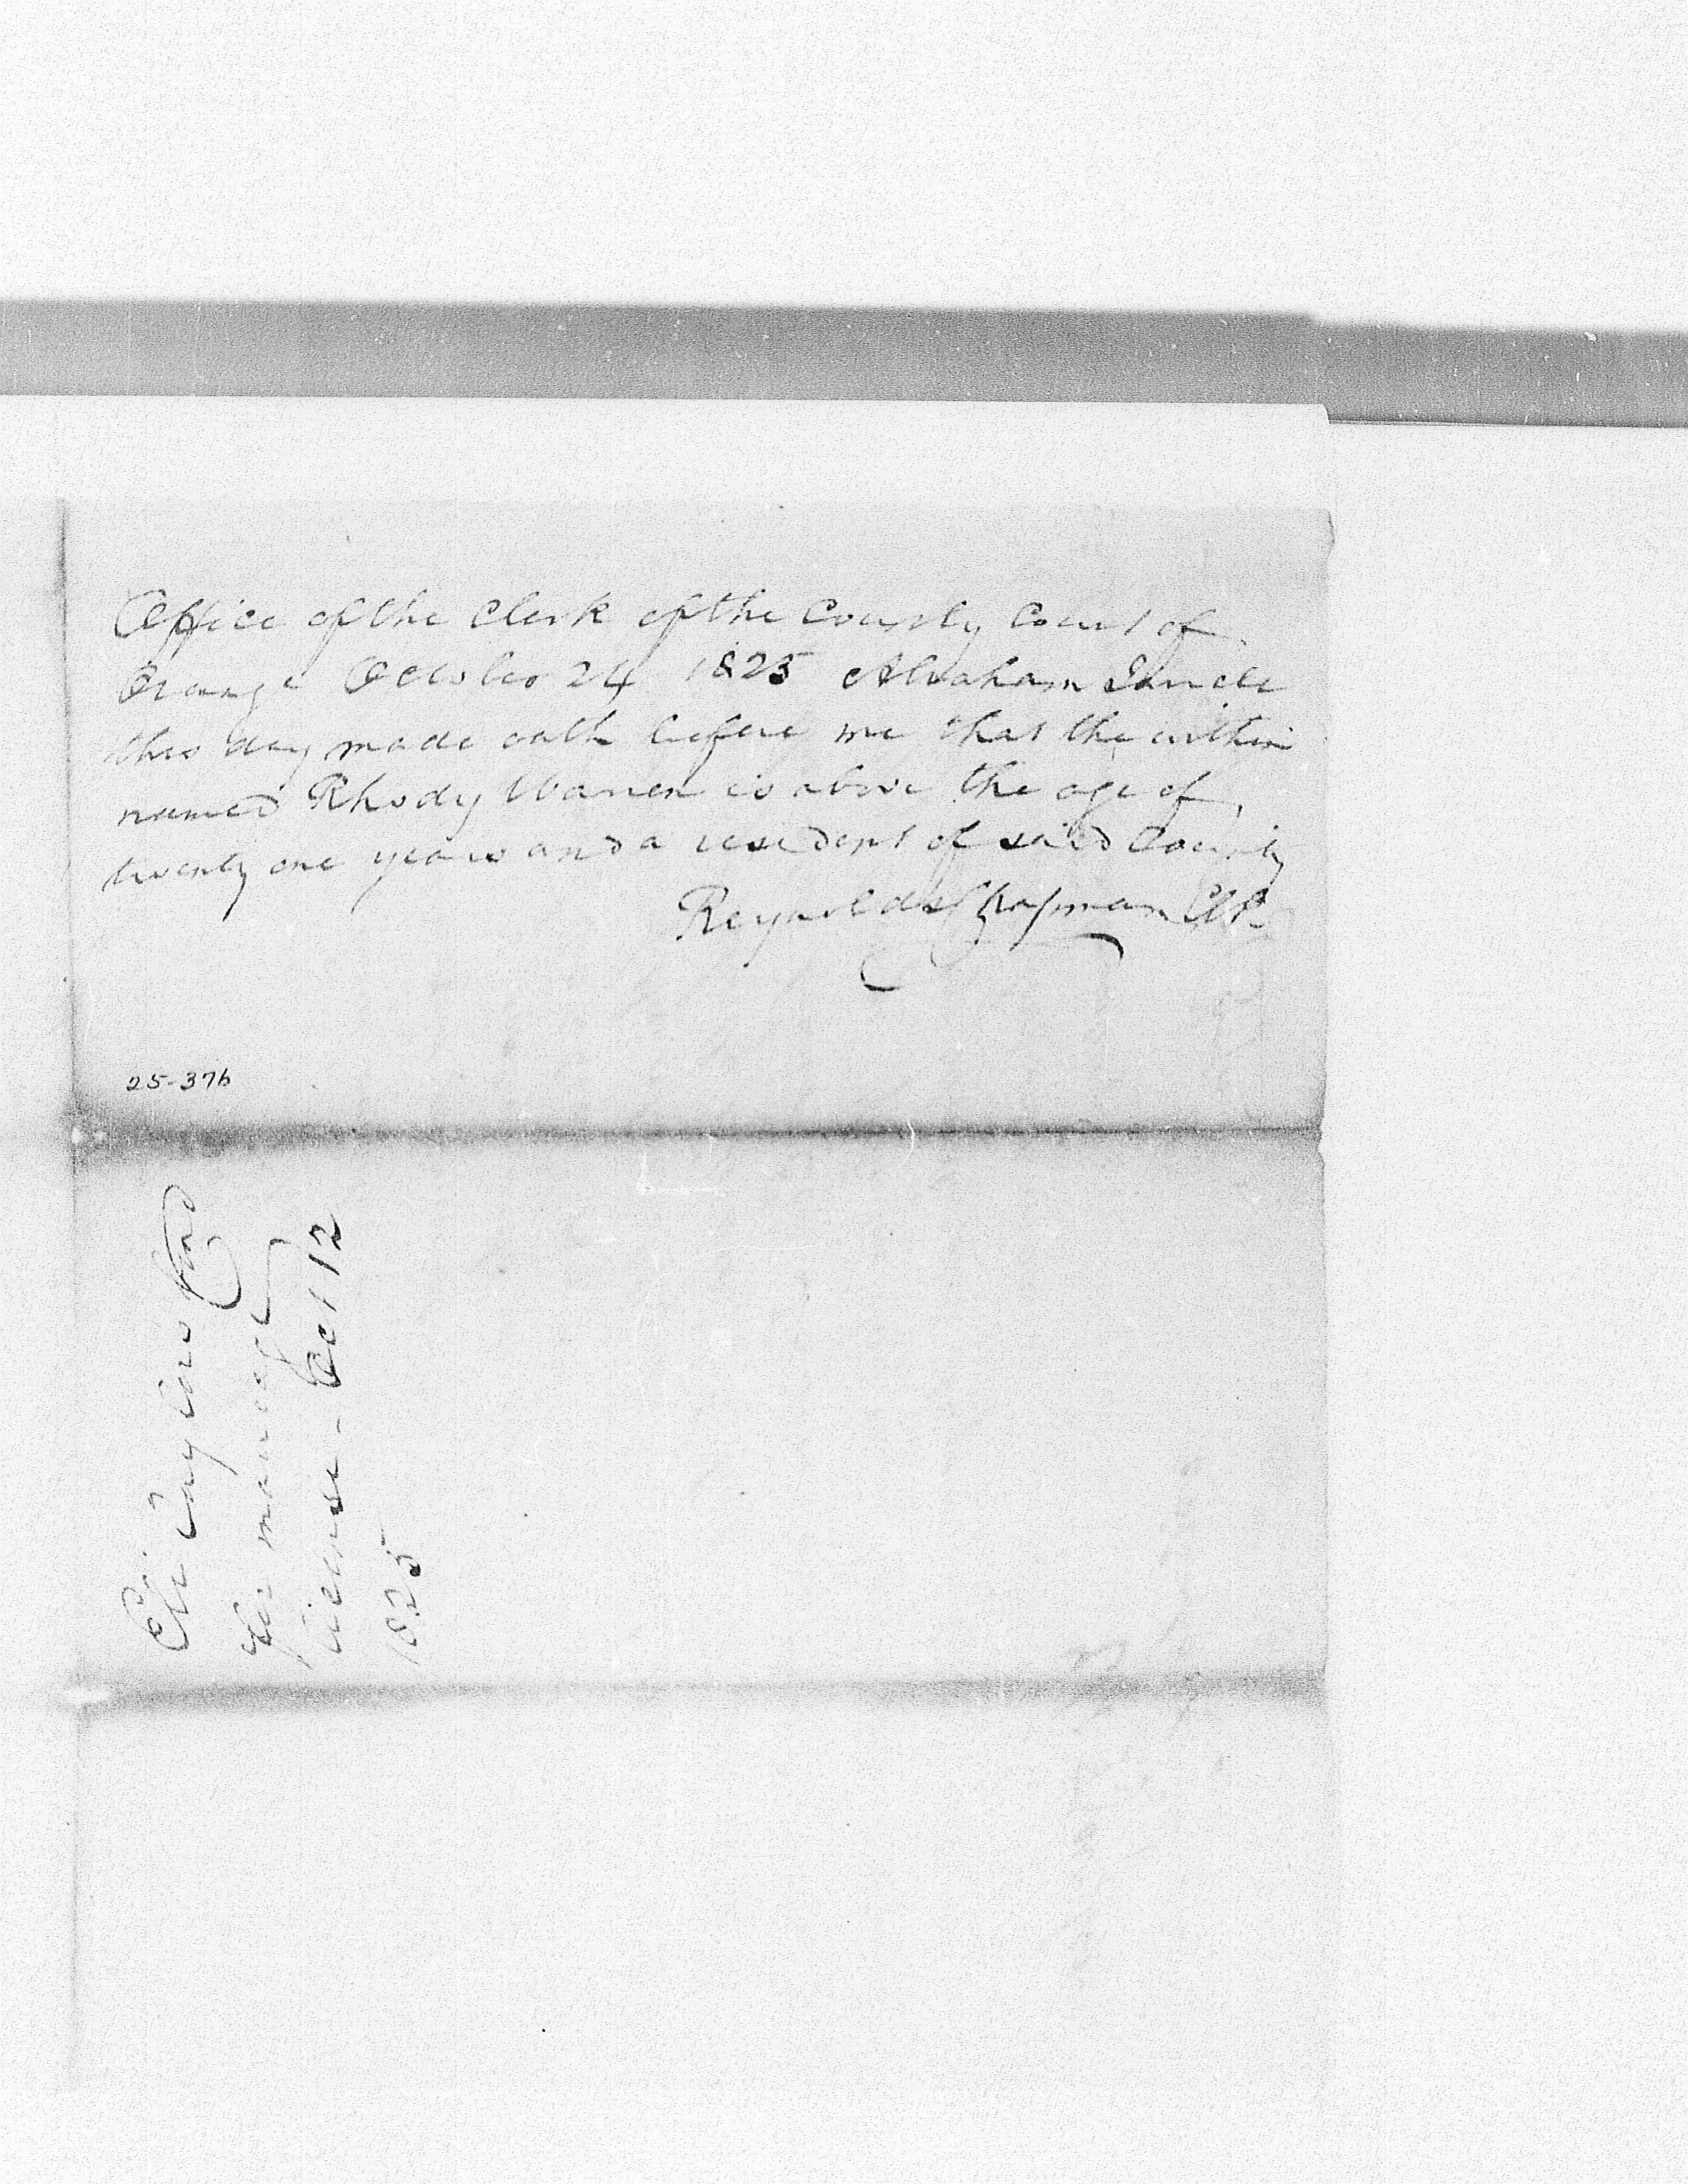 Office of the Clerk of the County Court of
Orange October 24 1825 Abraham
this day made oath before me that the within
named Rhody Warren is above the age of
twenty one years and a resident of said County
Reynolds Chapman Clk
25-376
Eli Taylors
for marriage
license - Oct 12
1825